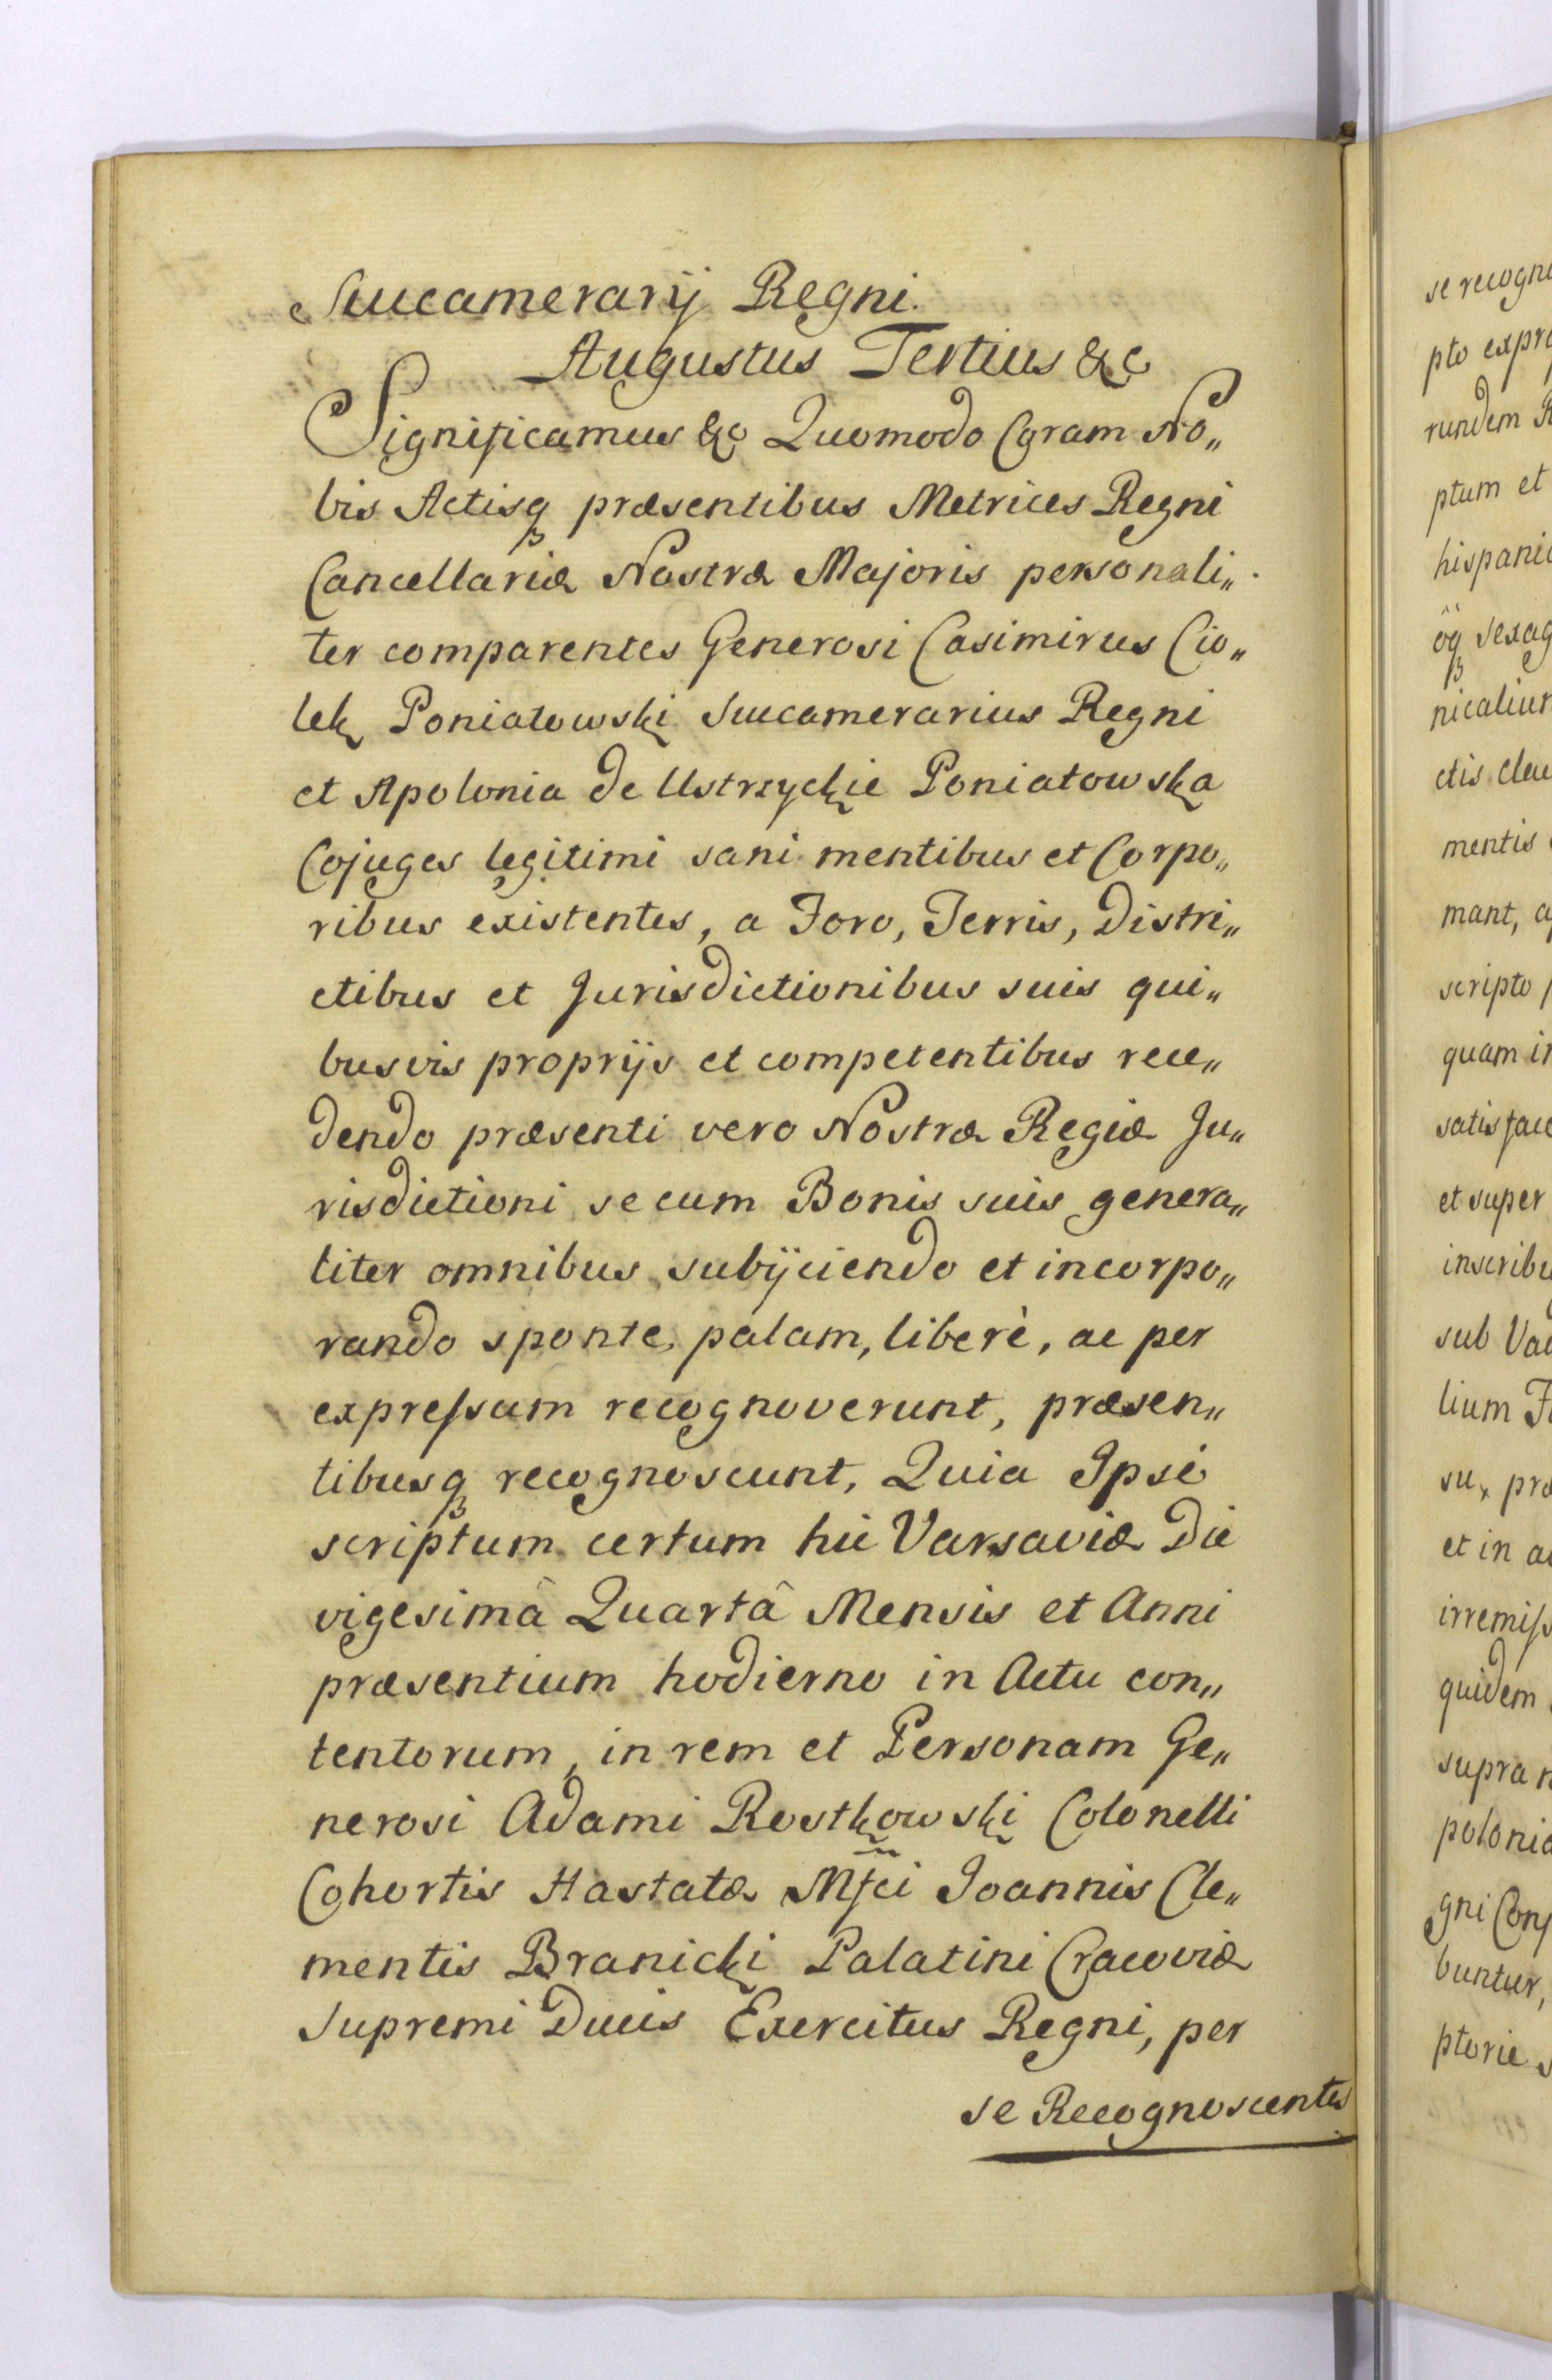 Succamerarij Regni.
Augustus Tertius &c
Significamus &c Quomodo Coram No„
bis Actisq præsentibus Metrices Regni
Cancellariæ Nostræ Majoris personali„
ter comparentes Generosi Casimirus Cio„
lek Poniatowski Succamerarius Regni
et Apolonia de Ustrzyckie Poniatowska
Cojuges legitimi sani mentibus et Corpo„
ribus existentes, a Foro, Terris, Distri„
ctibus et Jurisdictionibus suis qui„
busvis proprijs et competentibus rece„
dendo præsenti vero Nostræ Regiæ Ju„
risdictioni se cum Bonis suis genera„
liter omnibus subijciendo et incorpo„
rando sponte, palam, liberè, ac per
expressum recognoverunt, præsen„
tibusq recognoscunt, Quia Ipsi
scriptum certum hic Varsaviæ Die
vigesimâ Quartâ Mensis et Anni
præsentium hodierno in Actu con„
tentorum, in rem et Personam Ge„
nerosi Adami Rostkowski Colonelli
Cohortis Hastatæ Mfci Joannis Cle„
mentis Branicki Palatini Cracoviæ
Supremi Ducis Exercitus Regni, per
se Recognoscentes
se recogn
pto expr
rundem
ptum et
hispani
oq sexag
nicaliu
ctis clau
mentis
mant,
scripto
quam in
satisfac
et super
inscrib
sub Va
lium
sux præ
et in a
irremiss
quidem
supra n
poloni
gni Con
buntur,
ptorie